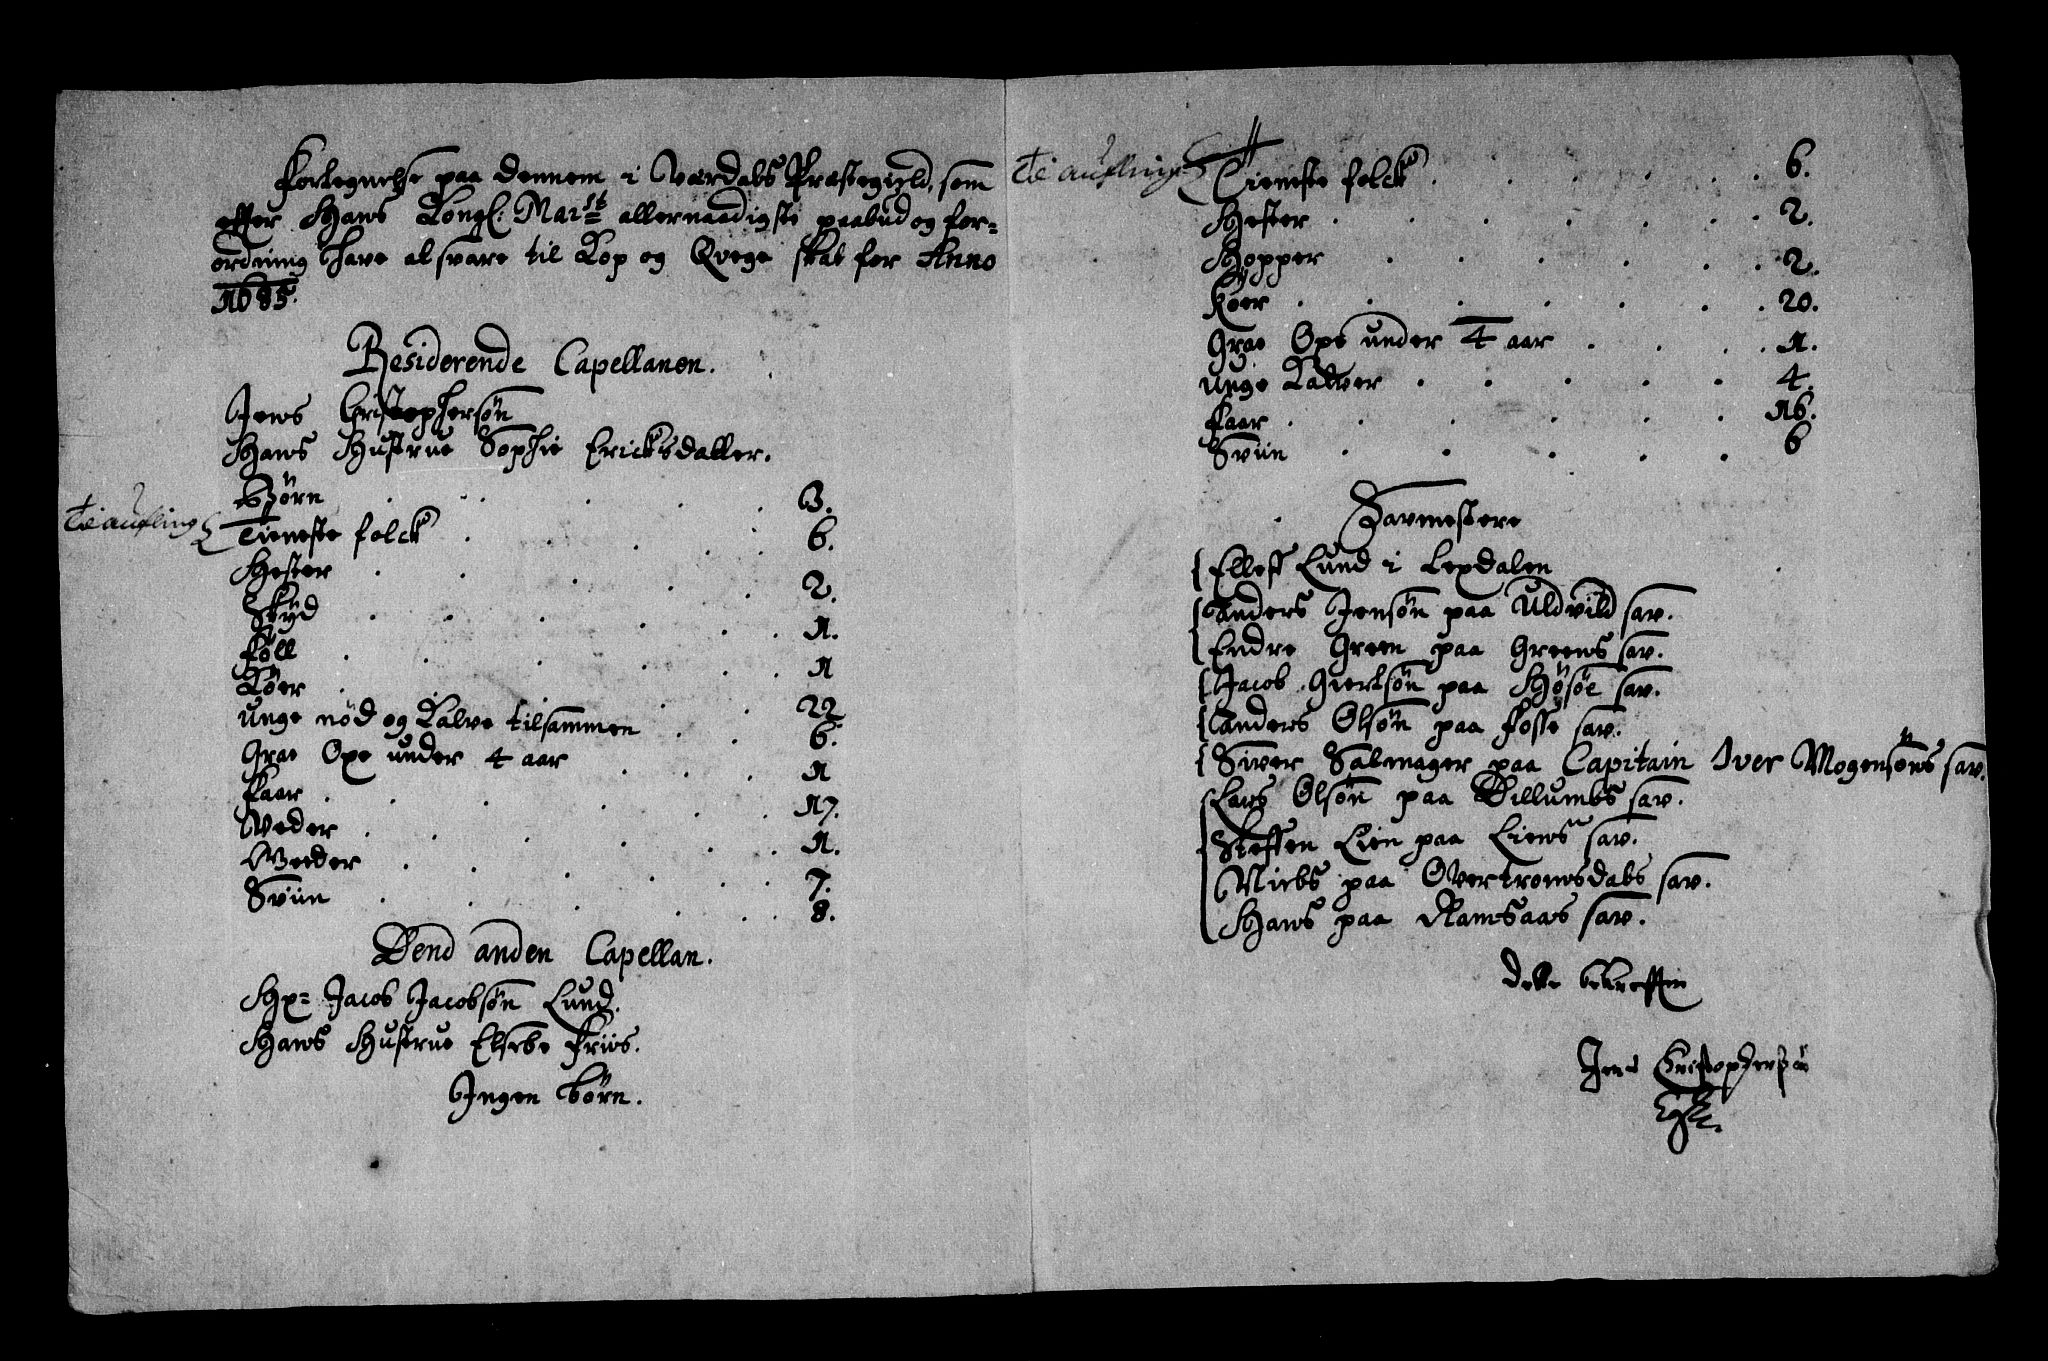 Fortegnelse paa dennem i Værdals Præstegield, som
efter Hans Kongl: May.st allernaadigste paabud og for=
ordning have at svare til Kop og Qvege skat for Anno
1685.
Residerende Capellanen.
Jens Christophersøn
Hans Hustrue Sophie Ericksdatter.
Børn . . . . . 3.
Til aufling Tieneste folck . . . . 6.
Hester . . . . . 2.
Skyd . . . . . . 1.
Føll . . . . . . 1
Køer . . . . . . 22
Unge nød og Kalve tilsammen . . 6.
Graa Oxe under 4 aar . . . 1
Faar . . . . . . 17.
Veder . . . . . . 1.
Geeder . . . . . . 7.
Sviin . . . . . . 8.
Dend anden Capellan.
Hr= Jacob Jacobsøn Lund.
Hans Hustrue Elsebe Friis.
Ingen børn.
Til aufling Tieneste folck . . . . . 6.
Hester . . . . . . 2.
Hopper . . . . . . 2.
Køer . . . . . . 20.
Graa Oxe under 4 aar . . . . 1.
Unge Kalver . . . . . 4.
Faar . . . . . . 16.
Sviin . . . . . 6
Savmestere
Elleff Lund i Lexdalen
Anders Jensøn paa Uldvild sav.
Endre Green paa Greens sav.
Jacob Giertsøn paa Høsøe sav.
Anders Olsøn paa Fosse sav.
Siver Salmager paa Capitain Iver Mogensøns sav.
Lars Olsøn paa Dillumbs sav.
Steffen Lien paa Liens sav.
Niels paa Overtromsdals sav.
Hans paa Ramsaas sav.
Dette bekreffter
Jens Christophersøn